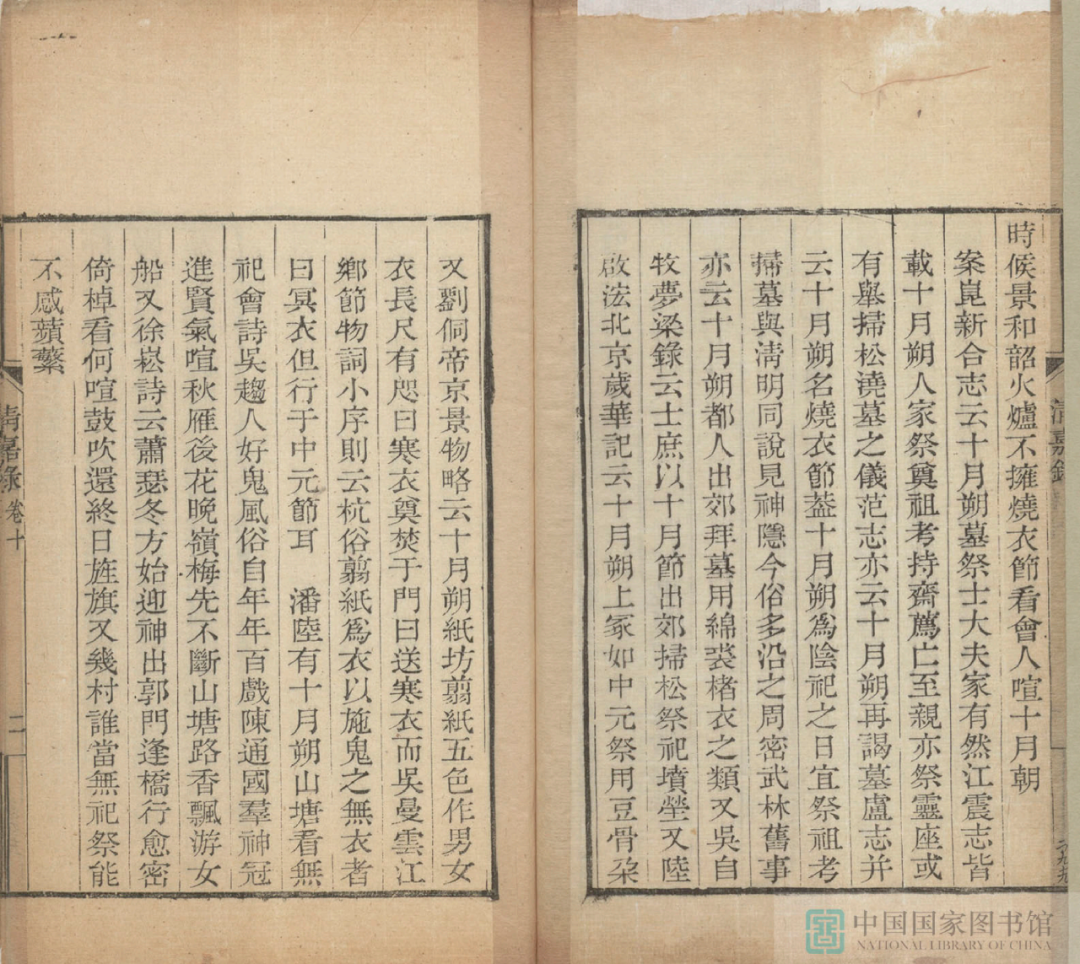 時候景和韶火爐不擁燒衣節看會人喧十月朝
案崑新合志云十月朔墓祭士大夫家有然江震志皆
載十月朔人家祭奠祖考持齋薦亡至親亦祭靈座或
有舉掃松澆墓之儀范志亦云十月朔再謁墓盧志并
云十月朔名燒衣節葢十月朔爲陰祀之日宜祭祖考
掃墓與淸明同說見神隱今俗多沿之周密武林舊事
亦云十月朔都人出郊拜墓用綿裘楮衣之類又吳自
牧夢粱錄云士庶以十月節出郊掃松祭祀墳塋又陸
啟浤北京歲華記云十月朔上冢如中元祭用豆骨朶
清嘉錄
又劉侗帝京景物略云十月朔紙坊翦紙五色作男女
衣長尺有咫曰寒衣奠焚于門曰送寒衣而吳曼雲江
鄉節物詞小序則云杭俗翦紙爲衣以施鬼之無衣者
曰冥衣但行于中元節耳　潘陸有十月朔山塘看無
祀會詩吳趨人好鬼風俗自年年百戲陳通國羣神冠
進賢氣喧秋雁後花晚嶺梅先不斷山塘路香飄游女
船又徐崧詩云蕭瑟冬方始迎神出郭門逢橋行愈密
倚棹看何喧鼓吹還終日旌旗又幾村誰當無祀祭能
不感蘋蘩
清嘉錄 卷十 二
中国国家图书馆
NATIONAL LIBRARY OF CHINA